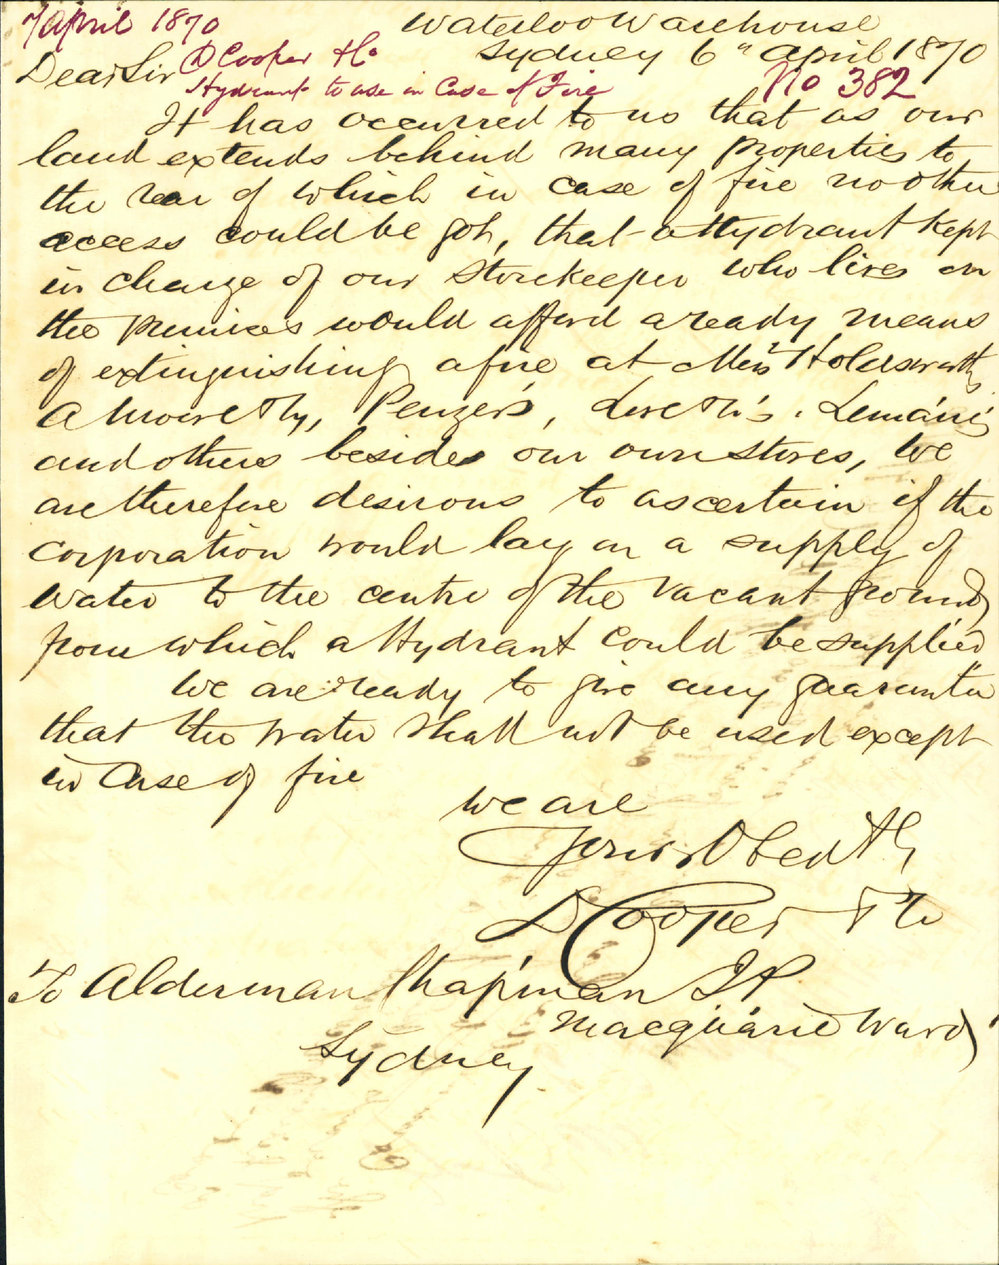 7 April 1870
Waterloo Warehouse
Sydney 6" April 1870
D Cooper & Co
No 382
Hydrant to use in Case of Fire
Dear Sir
It has occurred to us that as our
land extends behind many properties to
the rear of which in case of fire no other
access could be got, that a Hydrant kept
in charge of our Storekeeper who lives on
the premises would afford a ready means
of extinguishing a fire at Mess Holdsworth
Penzer's,
and others besides our own stores, We
are therefore desirous to ascertain if the
Corporation would lay on a supply of
Water to the centre of the vacant ground
from which a Hydrant could be supplied
We are ready to give any guarantee
that the Water shall not be used except
in Case of fire
We are
Your Obedt
D Cooper & Co
To Alderman Chapman JP
Macquarie Ward
Sydney